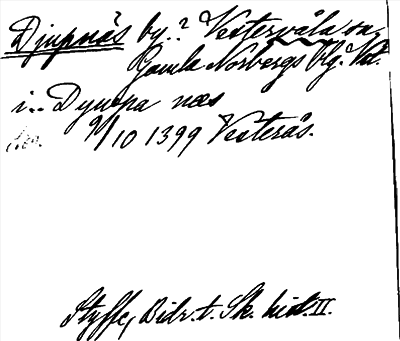 Djupnäs by.? Vestervåla sn,
Gamla Norbergs Bg. Vd.
i.. Dyupa næs
9/10 1399 Vesterås.
Styffe, Bidr. t. Sk. hist. II.